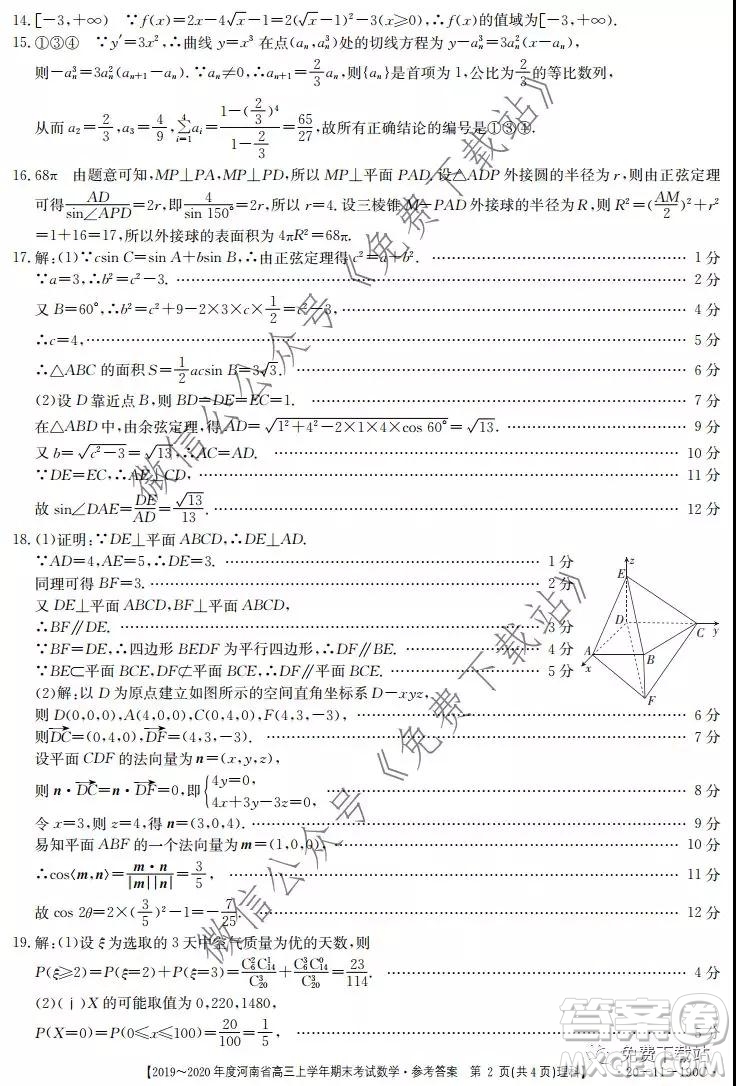 14.[-3,+∞) ∵f(x)=2x-4√x-1=2(√x-1)²-3(x≥0),∴f(x)的值域为[-3,+∞).
15.①③④ ∵y′=3x²,∴曲线y=x³在点(aₙ,aₙ³)处的切线方程为y-aₙ³=3aₙ²(x-aₙ),
则-aₙ³=3aₙ²(aₙ₊₁-aₙ).∵aₙ≠0,∴aₙ₊₁=2/3 aₙ,则{aₙ}是首项为1,公比为2/3的等比数列,
从而a₂=2/3,a₃=4/9,∑⁴ᵢ₌₁aᵢ=(1-(2/3)⁴)/(1-2/3)=65/27,故所有正确结论的编号是①③④.
16.68π 由题意可知,MP⊥PA,MP⊥PD,所以MP⊥平面PAD.设△ADP外接圆的半径为r,则由正弦定理
可得AD/sin∠APD=2r,即4/sin 150°=2r,所以r=4.设三棱锥M-PAD外接球的半径为R,则R²=(AM/2)²+r²
=1+16=17,所以外接球的表面积为4πR²=68π.
17.解:(1)∵csin C=sin A+bsin B,∴由正弦定理得c²=a+b². 1分
∵a=3,∴b²=c²-3. 2分
又B=60°,∴b²=c²+9-2×3×c×1/2=c²-3, 4分
∴c=4, 5分
∴△ABC的面积S=1/2 acsin B=3√3. 6分
(2)设D靠近点B,则BD=DE=EC=1. 7分
在△ABD中,由余弦定理,得AD=√(1²+4²-2×1×4×cos 60°)=√13. 9分
又b=√(c²-3)=√13,∴AC=AD. 10分
∵DE=EC,∴AE⊥CD, 11分
故sin∠DAE=DE/AD=√13/13. 12分
18.(1)证明:∵DE⊥平面ABCD,∴DE⊥AD.
∵AD=4,AE=5,∴DE=3. 1分
同理可得BF=3. 2分
又DE⊥平面ABCD,BF⊥平面ABCD,
∴BF∥DE. 3分
∵BF=DE,∴四边形BEDF为平行四边形,∴DF∥BE. 4分
∵BE⊂平面BCE,DF⊄平面BCE,∴DF∥平面BCE. 5分
z
E
D
C
y
A
B
x
F
(2)解:以D为原点建立如图所示的空间直角坐标系D-xyz,
则D(0,0,0),A(4,0,0),C(0,4,0),F(4,3,-3), 6分
则DC→=(0,4,0),DF→=(4,3,-3). 7分
设平面CDF的法向量为n=(x,y,z),
则n·DC→=n·DF→=0,即{4y=0, 4x+3y-3z=0, 8分
令x=3,则z=4,得n=(3,0,4). 9分
易知平面ABF的一个法向量为m=(1,0,0), 10分
∴cos⟨m,n⟩=m·n/|m||n|=3/5, 11分
故cos 2θ=2×(3/5)²-1=-7/25. 12分
19.解:(1)设ξ为选取的3天中空气质量为优的天数,则
P(ξ≥2)=P(ξ=2)+P(ξ=3)=C₆²C₁₄¹/C₂₀³+C₆³C₁₄⁰/C₂₀³=23/114. 4分
(2)(ⅰ)X的可能取值为0,220,1480,
P(X=0)=P(0≤x≤100)=20/100=1/5, 5分
【2019~2020年度河南省高三上学期期末考试数学·参考答案 第2页(共4页)理科】
微信公众号《免费下载站》
微信公众号《免费下载站》
免费下载站
答案圈